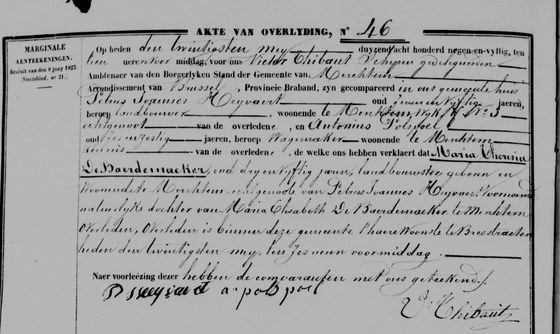 AKTE VAN OVERLYDING, N° 46
MARGINALE
AENTEEKENINGEN.
Besluit van den 8 juny 1823.
(Staetsblad, n° 21.)
Op heden den twintigsten mey duyzend acht honderd negen-en-vyftig, ten
tien ueren voor middag, voor ons Victor Thibaut Schepen gedelegeerden
Ambtenaer van den Borgerlyken Stand der Gemeente van Merchtem
Arrondissement van Brussel, Provincie Braband, zyn gecompareerd in ons gemeente huis
Petrus Joannes Heyvaert oud jaeren,
beroep landbouwer, woonende te Merchtem, Wyk N° 3
echtgenoot van de overledene, en Antonius Potspoel
oud jaeren, beroep Wagemaker te Merchtem
kennis van de overledene, de welke ons hebben verklaert dat Maria Theresia
De Baerdemaeker, oud vyftig jaren, landbouwster geboren en
Woonende te Merchtem echtgenoote van Petrus Joannes Heyvaert Voornoemd
natuerlyke dochter van Maria Elisabeth De Baerdemaeker te Merchtem
Overleden, Overleden is binnen deze gemeente t'haere Woonste te
heden den twintigsten mey, ten ure voormiddag.
Naer voorlezing dezer hebben de comparanten met ons geteekend.
a. potspoel
V. Thibaut